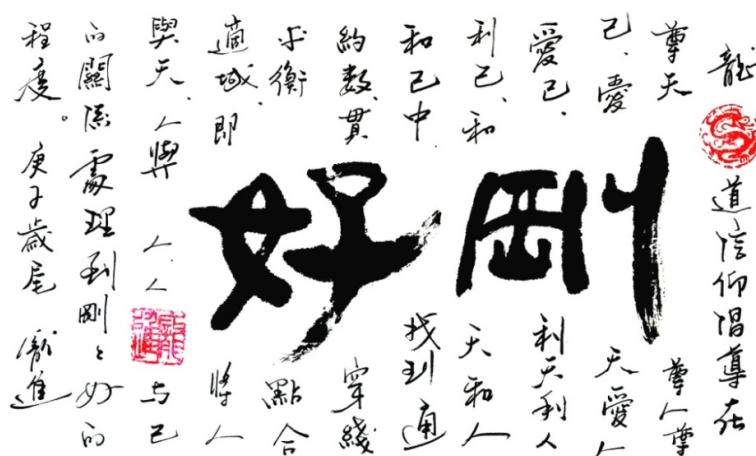 剛好
龍道信仰倡導在
尊天尊人尊
己、愛天愛人
愛己、利天利人
利己、和天和人
和己中找到通
約數、貫穿綫
平衡點合
適域、即將人
與天、人與人、人与己
的關係處理到剛々好的
程度。庚子歲尾 龍進